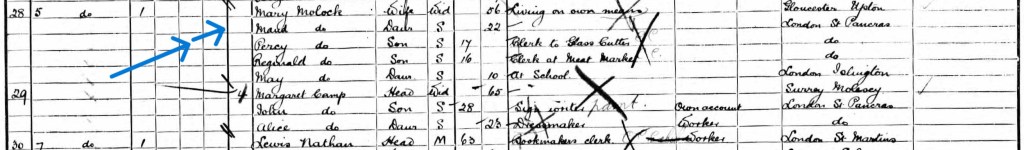 28 5 do 1 Mary Molock Wife Wd 56 Living on own means Gloucester Upton
Maud do Daur S 22 London St Pancras
Percy do Son S 17 Clerk to Glass Cutter do
Reginald do Son S 16 Clerk at Meat Market do
May do Daur S 10 At School London Islington
29 4 Margaret Camp Head Wid 65 Surrey Molesey
John do Son S 28 Sign writer paint. Own account London St Pancras
Alice do Daur S 23 Dressmaker Worker do
30 7 do 1 Lewis Nathan Head M 63 Bookmakers clerk Worker London St Martins